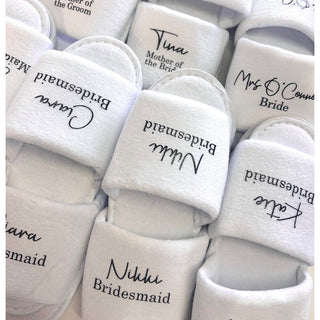 of the Groom
Tina
Mother of
the Bride
Mrs O'Conno
Bride
Ciara
Bridesmaid
Nikki
Bridesmaid
Katie
Bridesmaid
iara
esmaid
Nikki
Bridesmaid